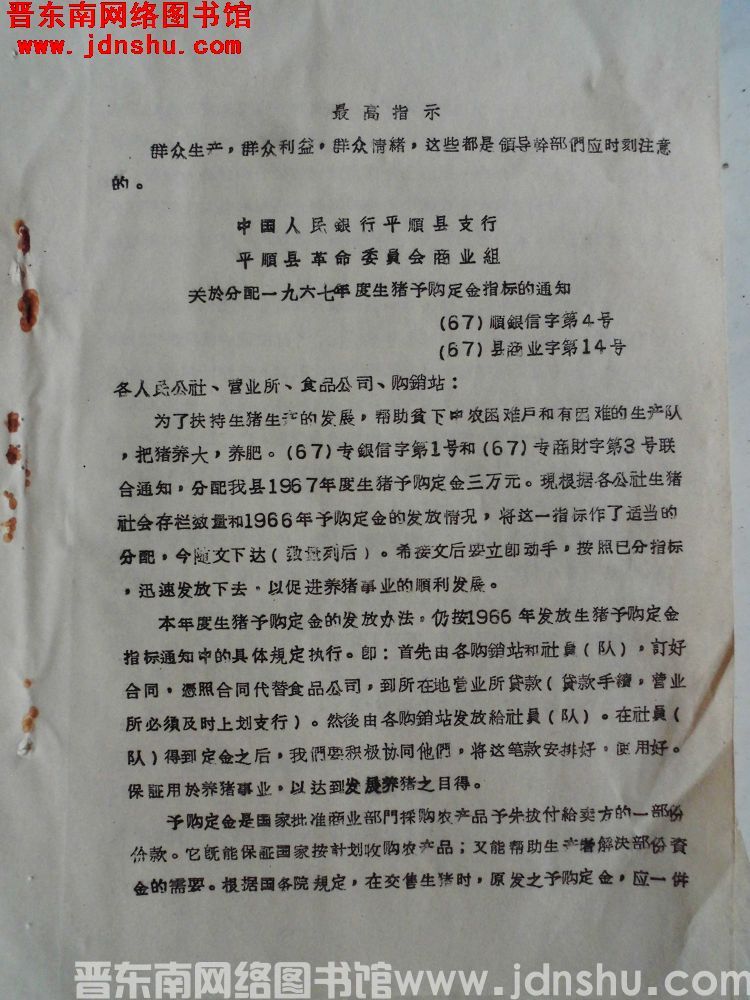 晋东南网络图书馆
www.jdnshu.com
最高指示
群众生产，群众利益，群众情緒，这些都是領导幹部們应时刻注意
的。
中国人民銀行平順县支行
平順县革命委員会商业組
关於分配一九六七年度生猪予购定金指标的通知
(67)順銀信字第4号
(67)县商业字第14号
各人民公社、营业所、食品公司、购銷站：
为了扶持生猪生产的发展，帮助貧下中农困难戶和有困难的生产队
，把猪养大，养肥。(67)专銀信字第1号和(67)专商財字第3号联
合通知，分配我县1967年度生猪予购定金三万元。現根据各公社生猪
社会存栏数量和1966年予购定金的发放情况，将这一指标作了适当的
分配，今随文下达(数量列后)。希接文后要立卽动手，按照已分指标
，迅速发放下去，以促进养猪事业的順利发展。
本年度生猪予购定金的发放办法，仍按1966年发放生猪予购定金
指标通知中的具体規定执行。卽：首先由各购銷站和社員(队)，訂好
合同，憑照合同代替食品公司，到所在地营业所貸款(貸款手續，营业
所必須及时上划支行)。然後由各购銷站发放給社員(队)。在社員(
队)得到定金之后，我們要积极协同他們，将这笔款安排好，使用好。
保証用於养猪事业，以达到发展养猪之目得。
予购定金是国家批准商业部門採购农产品予先拔付給卖方的一部份
份款。它旣能保証国家按計划收购农产品；又能帮助生产者解决部份資
金的需要。根据国务院規定，在交售生猪时，原发之予购定金，应一併
晋东南网络图书馆www.jdnshu.com